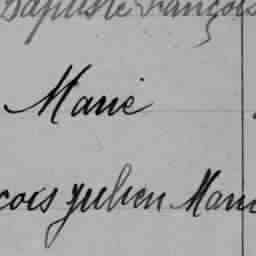 Baptiste François
Marie
çois Julien Mari